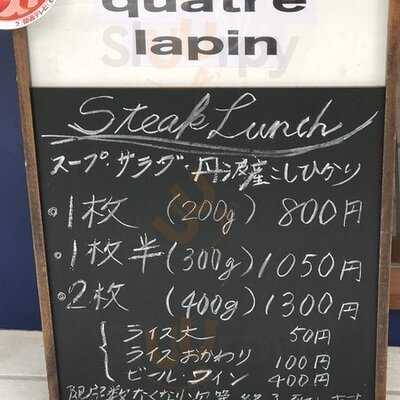 quatre
lapin
Steak Lunch
スープ・サラダ・丹波産こしひかり
・1枚 (200g) 800円
・1枚半(300g) 1050円
・2枚 (400g) 1300円
ライス大 50円
ライスおかわり 100円
ビール・ワイン 400円
限定数なくなり次第終了